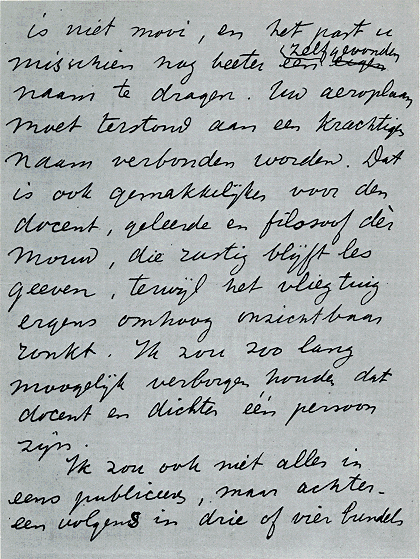 is niet mooi, en het past u
misschien nog beeter een eigen zelfgevonden
naam te dragen. Uw aeroplaan
moet terstond aan een krachtigen
naam verbonden worden. Dat
is ook gemakkelijker voor den
docent, geleerde en filosoof dèr
Mouw, die rustig blijft les
geeven, terwijl het vliegtuig
ergens omhoog onzichtbaar
ronkt. Ik zou zoo lang
moogelijk verborgen houden dat
docent en dichter één persoon
zijn.
Ik zou ook niet alles in
eens publiceeren, maar achter-
eenvolgens in drie of vier bundels